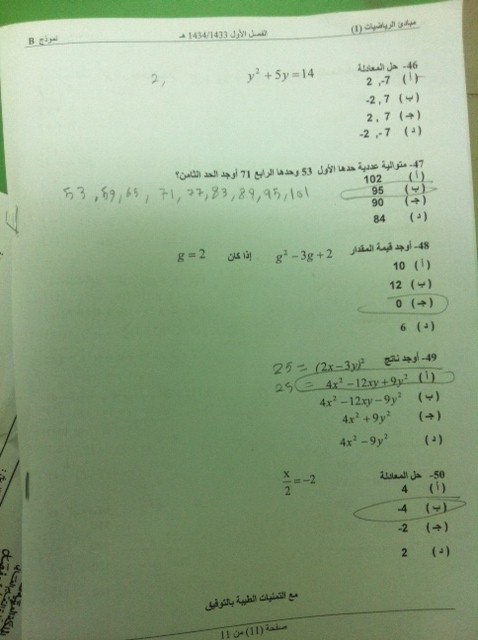 مبادئ الرياضيات (1) الفصل الأول 1434/1433 هـ نموذج B
46- حل المعادلة y² + 5y = 14 2,
(أ) 2 ,-7
(ب) -2, 7
(جـ) 2, 7
(د) -2, -7
47- متوالية عددية حدها الأول 53 وحدها الرابع 71 أوجد الحد الثامن؟
(أ) 102
(ب) 95
53, 59, 65, 71, 77, 83, 89, 95, 101
(جـ) 90
(د) 84
48- أوجد قيمة المقدار g² − 3g + 2 إذا كان g = 2
(أ) 10
(ب) 12
(جـ) 0
(د) 6
49- أوجد ناتج (2x − 3y)² = 25
(أ) 4x² − 12xy + 9y² = 25
(ب) 4x² − 12xy − 9y²
(جـ) 4x² + 9y²
(د) 4x² − 9y²
50- حل المعادلة x/2 = −2
(أ) 4
(ب) -4
(جـ) -2
(د) 2
مع التمنيات الطيبة بالتوفيق
صفحة (11) من 11